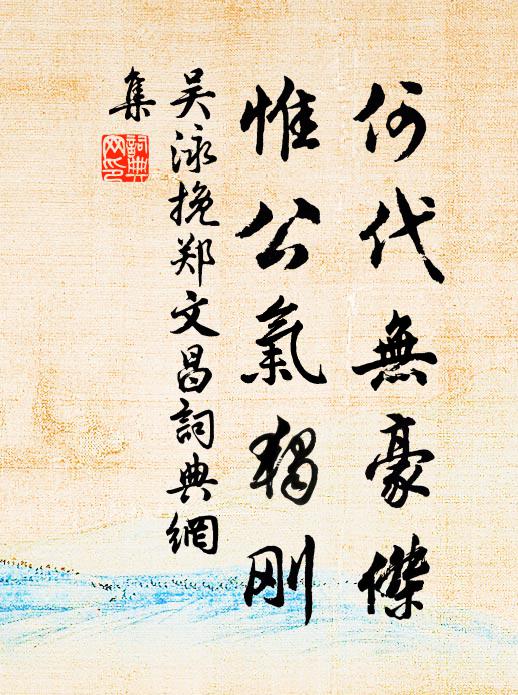 何代無豪傑
惟公氣獨刚
吴泳挽郑文昌詞典網
集
詞典网印